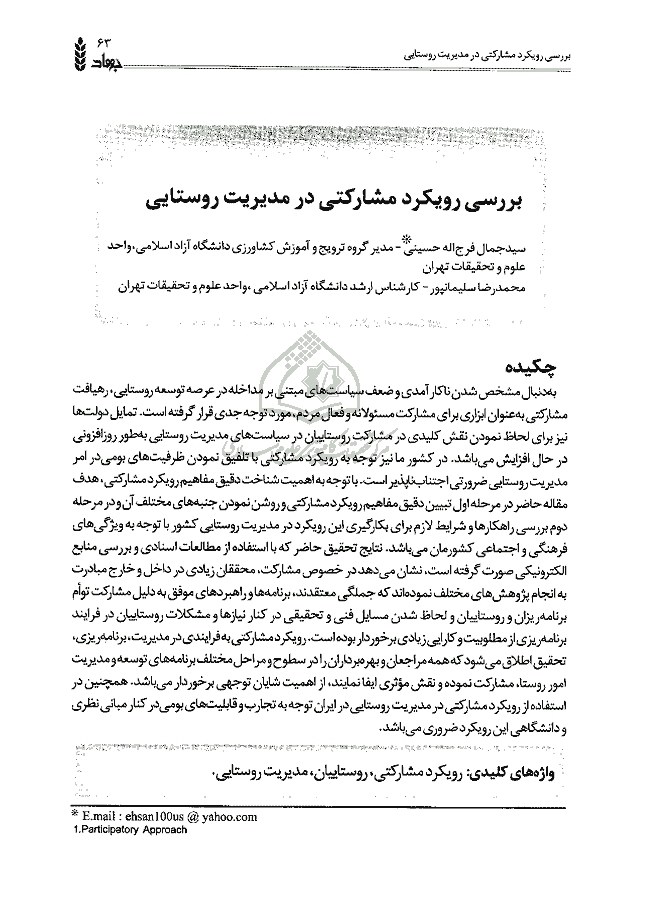 بررسی رویکرد مشارکتی در مدیریت روستایی
۶۳
جهاد
بررسی رویکرد مشارکتی در مدیریت روستایی
سیدجمال فرج‌اله حسینی* - مدیر گروه ترویج و آموزش کشاورزی دانشگاه آزاد اسلامی،واحد
علوم و تحقیقات تهران
محمدرضا سلیمانپور - کارشناس ارشد دانشگاه آزاد اسلامی ،واحد علوم و تحقیقات تهران
چکیده
به‌دنبال مشخص شدن ناکارآمدی و ضعف سیاست‌های مبتنی بر مداخله در عرصه توسعه روستایی، رهیافت
مشارکتی به‌عنوان ابزاری برای مشارکت مسئولانه و فعال مردم، مورد توجه جدی قرار گرفته است. تمایل دولت‌ها
نیز برای لحاظ نمودن نقش کلیدی در مشارکت روستاییان در سیاست‌های مدیریت روستایی به‌طور روزافزونی
در حال افزایش می‌باشد. در کشور ما نیز توجه به رویکرد مشارکتی با تلفیق نمودن ظرفیت‌های بومی‌در امر
مدیریت روستایی ضرورتی اجتناب‌ناپذیر است. با توجه به اهمیت شناخت دقیق مفاهیم رویکرد مشارکتی، هدف
مقاله حاضر در مرحله اول تبیین دقیق مفاهیم رویکرد مشارکتی و روشن نمودن جنبه‌های مختلف آن و در مرحله
دوم بررسی راهکارها و شرایط لازم برای بکارگیری این رویکرد در مدیریت روستایی کشور با توجه به ویژگی‌های
فرهنگی و اجتماعی کشورمان می‌باشد. نتایج تحقیق حاضر که با استفاده از مطالعات اسنادی و بررسی منابع
الکترونیکی صورت گرفته است، نشان می‌دهد در خصوص مشارکت، محققان زیادی در داخل و خارج مبادرت
به انجام پژوهش‌های مختلف نموده‌اند که جملگی معتقدند، برنامه‌ها و راهبردهای موفق به دلیل مشارکت توأم
برنامه‌ریزان و روستاییان و لحاظ شدن مسایل فنی و تحقیقی در کنار نیازها و مشکلات روستاییان در فرایند
برنامه‌ریزی از مطلوبیت و کارایی زیادی برخوردار بوده است. رویکرد مشارکتی به فرایندی در مدیریت، برنامه‌ریزی،
تحقیق اطلاق می‌شود که همه مراجعان و بهره‌برداران را در سطوح و مراحل مختلف برنامه‌های توسعه و مدیریت
امور روستا، مشارکت نموده و نقش مؤثری ایفا نمایند، از اهمیت شایان توجهی برخوردار می‌باشد. همچنین در
استفاده از رویکرد مشارکتی در مدیریت روستایی در ایران توجه به تجارب و قابلیت‌های بومی‌در کنار مبانی نظری
و دانشگاهی این رویکرد ضروری می‌باشد.
واژه‌های کلیدی: رویکرد مشارکتی، روستاییان، مدیریت روستایی.
* E.mail : ehsan100us @ yahoo.com
1.Participatory Approach